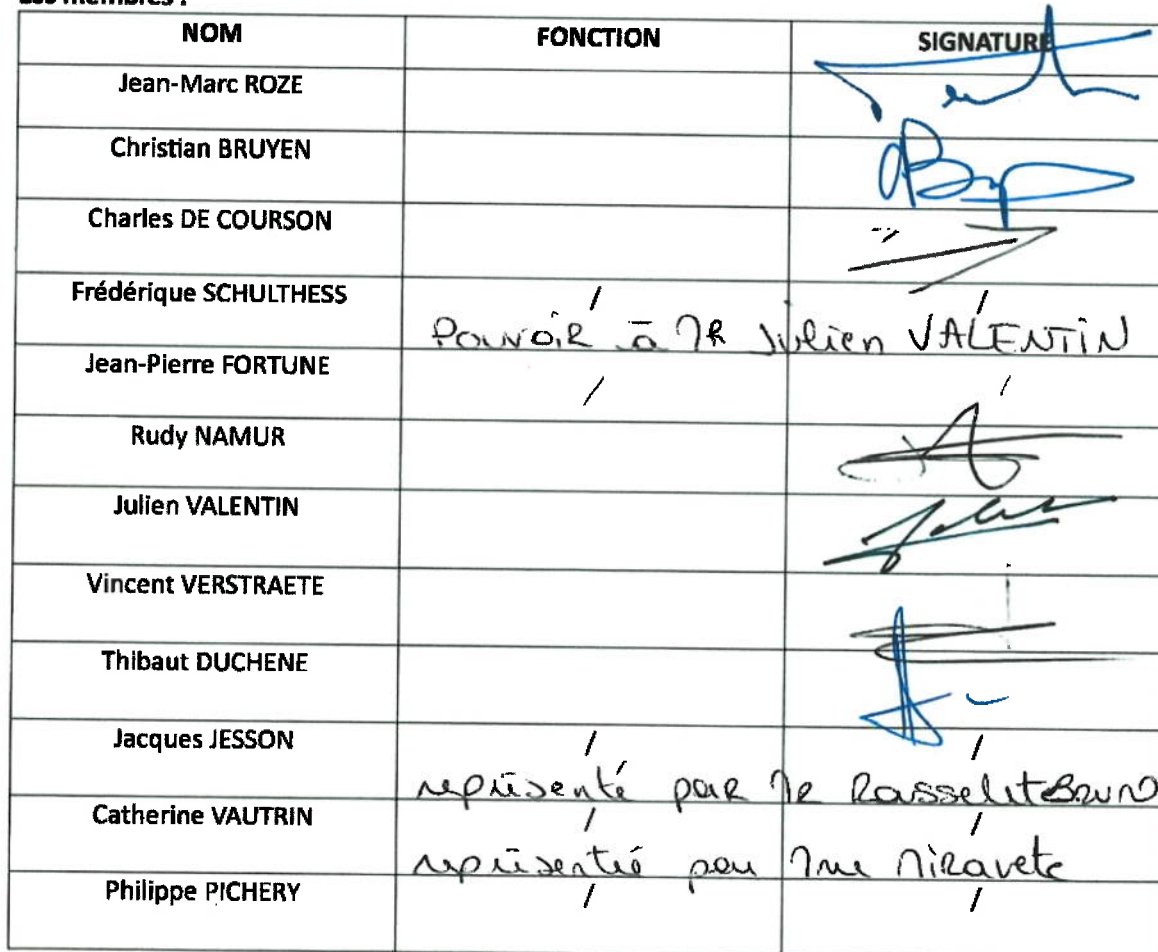 Les membres :
NOM FONCTION SIGNATURE
Jean-Marc ROZE
Christian BRUYEN
Charles DE COURSON
Frédérique SCHULTHESS / /
Pouvoir à Mr Julien VALENTIN
Jean-Pierre FORTUNE / /
Rudy NAMUR
Julien VALENTIN
Vincent VERSTRAETE
Thibaut DUCHENE
Jacques JESSON / /
représenté par Mr Rousselet Bruno
Catherine VAUTRIN / /
représenté par Mme Miravete
Philippe PICHERY / /